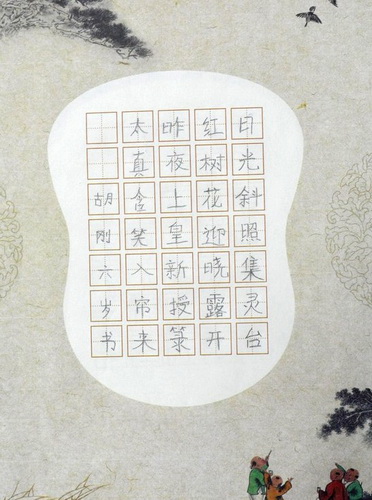 日光斜照集灵台
红树花迎晓露开
昨夜上皇新授箓
太真含笑入帘来
胡刚六岁书